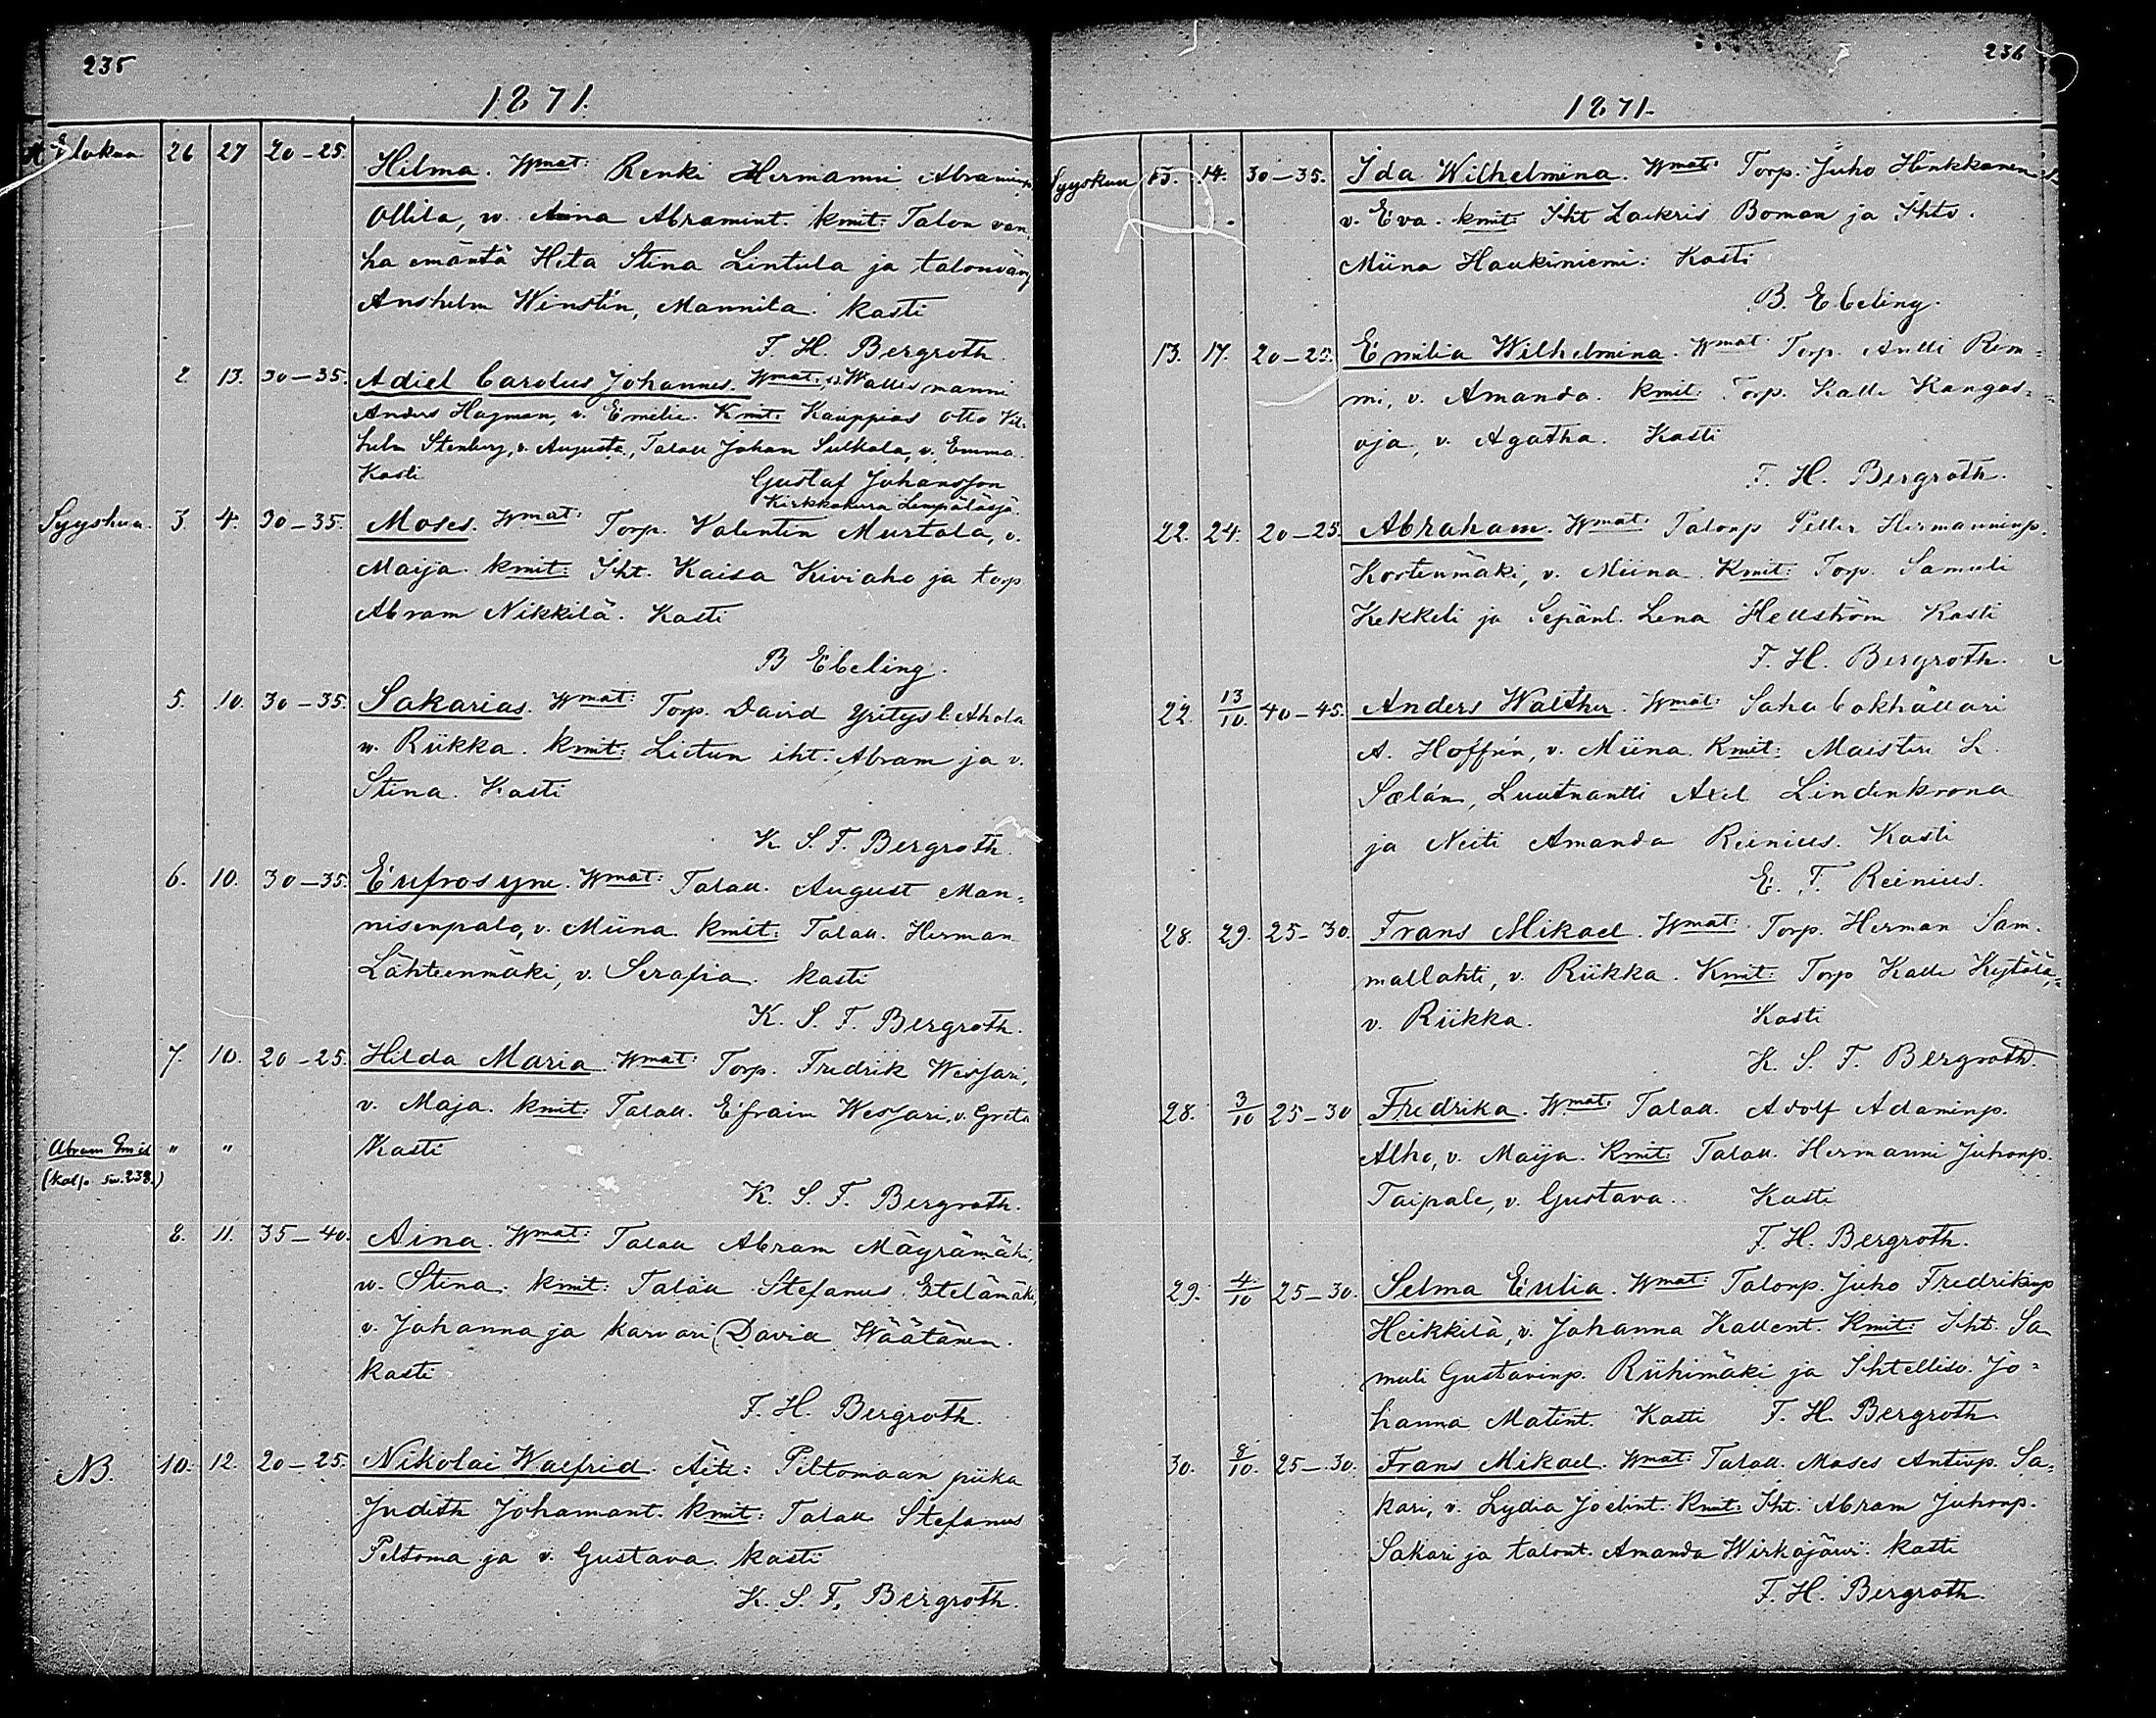 235
1871.
Elokuu 26 27 20-25. Hilma. Wmat: Renki Hermanni Abraminp.
Ollila, w. Aina Abramint. kmit: Talon van,
ha emäntä Heta Stina Lintula ja talonväv
Anshelm Winstén, Mannila. kasti
F. H. Bergroth.
2. 13. 30-35. Adiel Carolus Johannes. Wmat: v. Wallesmanni
Anders Hagman, v. Emilie. Kmit: Kauppias Otto Vil-
helm Stenberg, v. Augusta, Talall Johan Sulkala, v. Emma.
Kasti Gustaf Johansson
Kirkkoherra Lempäläsjä.
Syyskuu. 3. 4. 30-35. Moses. Wmat: Torp. Valentin Murtola, v.
Maija. kmit: Iht. Kaisa Kiviaho ja torp
Abram Nikkilä. Kasti
B Ebeling.
5. 10. 30-35. Sakarias. Wmat: Torp. David Yritys l. Ahola
w. Riikka. kmit: Lietun iht. Abram ja v.
Stina. Kasti
K. S. F. Bergroth.
6. 10. 30-35. Eufrosyne. Wmat: Talall. August Man-
nisenpalo, v. Miina. kmit: Talall. Herman
Lähteenmäki, v. Serafia. kasti
K. S. F. Bergroth.
7. 10. 20-25. Hilda Maria. Wmat: Torp. Fredrik Wessari,
v. Maja. kmit: Talall. Efraim Wessari, v. Greta
Abram Emil " " Kasti
(kats. siv. 238.)
K. S. F. Bergroth.
8. 11. 35-40. Aina. Wmat: Talall Abram Mäyrämäki,
w. Stina. kmit: Talall Stefanus Etelämäki,
v. Johanna ja karvari David Wäätänen.
kasti
F. H. Bergroth.
NB. 10. 12. 20-25. Nikolai Walfrid. Äiti: Piltomaan piika
Judith Johannant. kmit: Talall Stefanus
Peltoma ja v. Gustava. kasti
K. S. F. Bergroth.
236
1871.
Syyskuu 13. 14. 30-35. Ida Wilhelmina. Wmat: Torp. Juho Hinkkanen
v. Eva. kmit: Iht Zackris Boman ja Ihtv.
Miina Haukiniemi. Kasti
B. Ebeling.
13. 17. 20-25. Emilia Wilhelmina. Wmat Torp. Antti Rim-
mi, v. Amanda. kmit: Torp. Kalle Kangas-
oja, v. Agatha. Kasti
F. H. Bergroth.
22. 24. 20-25. Abraham. Wmat: Talonp Petter Hermanninp.
Kortenmäki, v. Miina. Kmit: Torp. Samuli
Kekkeli ja Sepänl. Lena Hellström Kasti
F. H. Bergroth.
22. 13/10. 40-45. Anders Walther. Wmat: Saha bokhållari
A. Hoffrén, v. Miina. Kmit: Maisteri
Sælán, Luutnantti Axel Lindenkrona
ja Neiti Amanda Reinius. Kasti
E. F. Reinius.
28. 29. 25-30. Frans Mikael. Wmat: Torp. Herman Sam-
mallahti, v. Riikka. Kmit: Torp Kalle Kytölä,
v. Riikka. Kasti
K. S. F. Bergroth.
28. 3/10 25-30 Fredrika. Wmat: Talall. Adolf Adaminp.
Alho, v. Maija. Kmit: Talall. Hermanni Juhonp.
Taipale, v. Gustava. Kasti
F. H. Bergroth.
29. 4/10 25-30. Selma Eulia. Wmat: Talonp. Juho Fredrikinp
Heikkilä, v. Johanna Kallent. Kmit: Iht. Sa
muli Gustavinp. Riihimäki ja Ihtellisv. Jo-
hanna Matint. Kasti F. H. Bergroth.
30. 8/10. 25-30. Frans Mikael. Wmat: Talall. Moses Antinp. Sa-
kari, v. Lydia Joelint. Kmit: Iht. Abram Juhonp.
Sakari ja talont. Amanda Wirkajärvi. kasti
F. H. Bergroth.